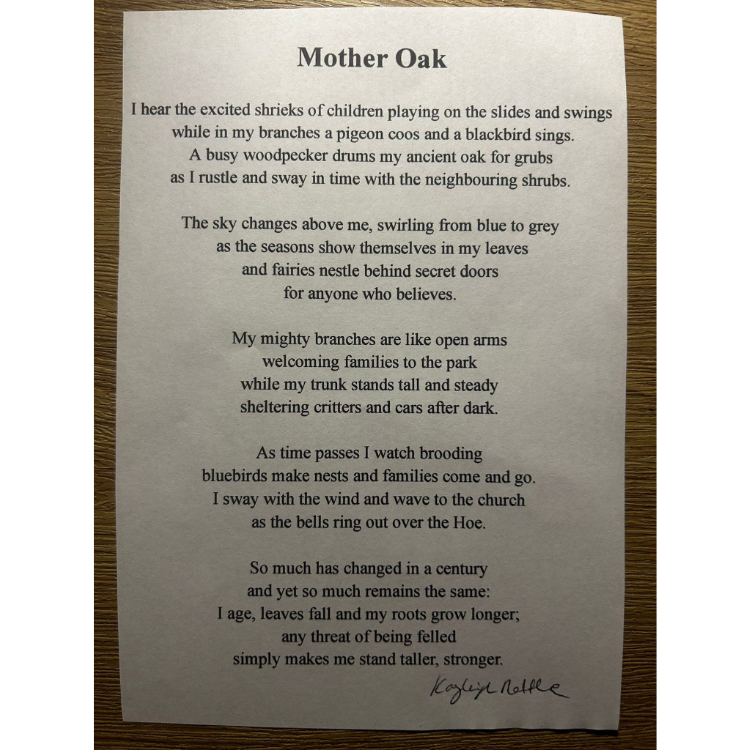 Mother Oak
I hear the excited shrieks of children playing on the slides and swings
while in my branches a pigeon coos and a blackbird sings.
A busy woodpecker drums my ancient oak for grubs
as I rustle and sway in time with the neighbouring shrubs.
The sky changes above me, swirling from blue to grey
as the seasons show themselves in my leaves
and fairies nestle behind secret doors
for anyone who believes.
My mighty branches are like open arms
welcoming families to the park
while my trunk stands tall and steady
sheltering critters and cars after dark.
As time passes I watch brooding
bluebirds make nests and families come and go.
I sway with the wind and wave to the church
as the bells ring out over the Hoe.
So much has changed in a century
and yet so much remains the same:
I age, leaves fall and my roots grow longer;
any threat of being felled
simply makes me stand taller, stronger.
Kayleigh